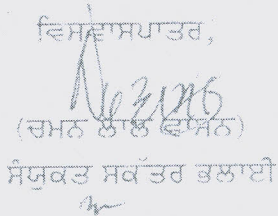 ਵਿਸ਼ਵਾਸਪਾਤਰ,
(ਚਮਨ ਲਾਲ ਵਾਸਨ)
ਸੰਯੁਕਤ ਸਕੱਤਰ ਭਲਾਈ